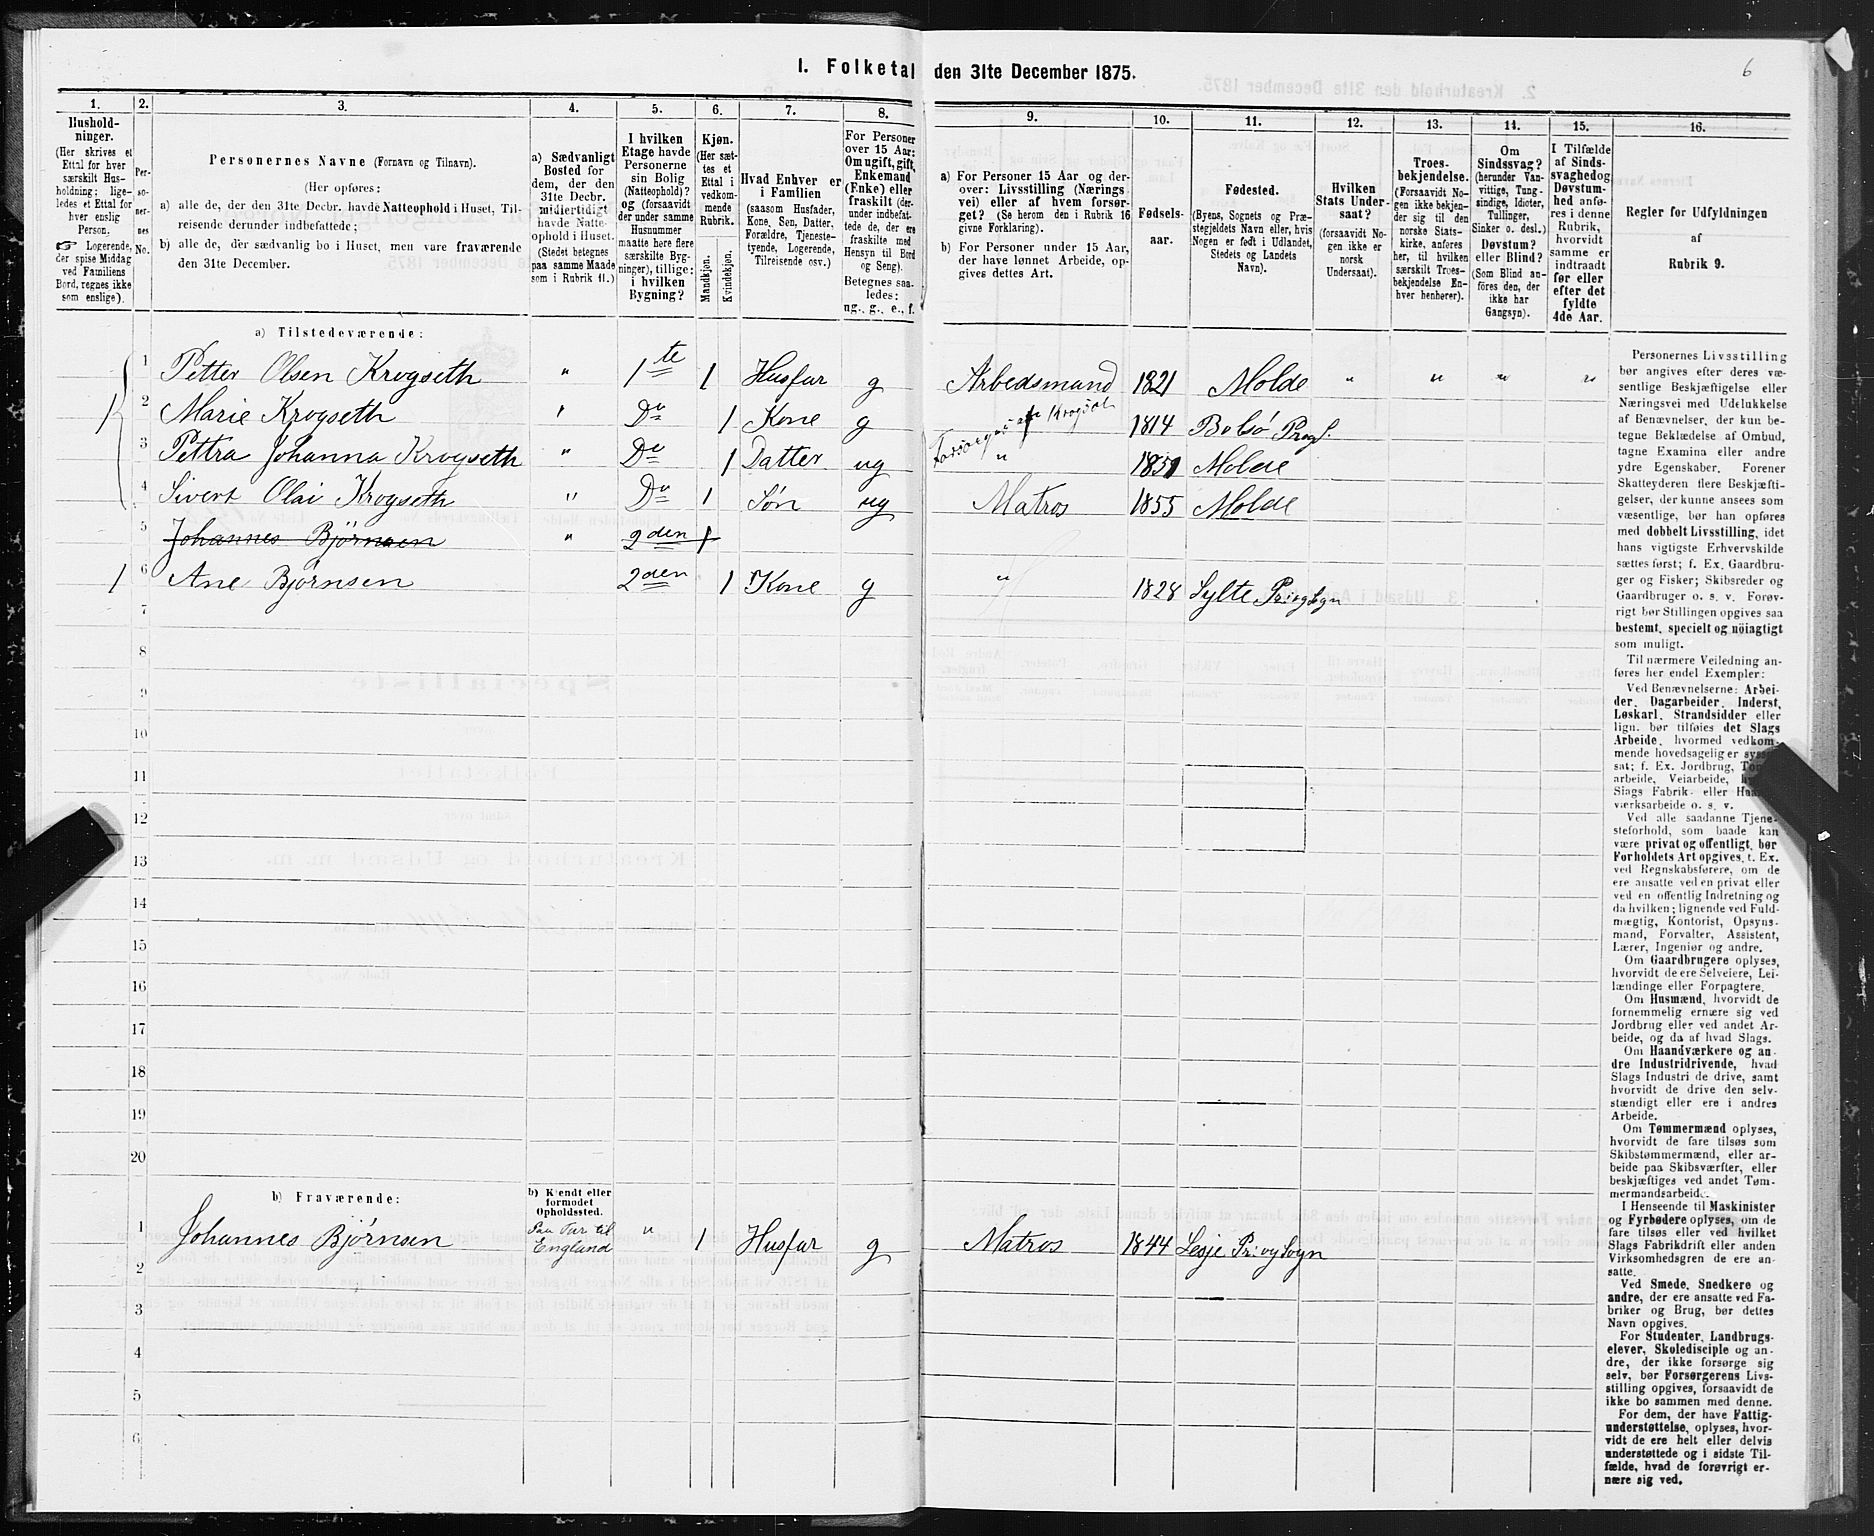 I. Folketal den 31te December 1875.
6
1.
2.
3.
4.
5.
6.
7.
8.
9.
10.
11.
12.
13.
14.
15.
16.
Hushold-
ninger.
(Her skrives et
Ettal for hver
særskilt Hus-
holdning; lige-
ledes et Ettal for
hver enslig
Person.
☞ Logerende,
der spise Middag
ved Familiens
Bord, regnes ikke
som enslige).
Per-
so-
ner-
nes
No.
Personernes Navne (Fornavn og Tilnavn).
(Her opføres:
a) alle de, der den 31te Decbr. havde Natteophold i Huset, Til-
reisende derunder indbefattede;
b) alle de, der sædvanlig bo i Huset, men vare fraværende
den 31te December.
a) Sædvanligt
Bosted for
dem, der den
31te Decbr.
midlertidigt
havde Natte-
ophold i Huset.
(Stedet betegnes
paa samme Maade
som i Rubrik 11.)
I hvilken
Etage havde
Personerne
sin Bolig
(Natteophold)?
og (forsaavidt
der under samme
Husnummer
maatte høre flere
særskilte Byg-
ninger), tillige:
i hvilken
Bygning?
Kjøn.
(Her sæt-
tes et
Ettal i
vedkom-
mende
Rubrik.
Mandkjøn.
Kvindekjøn.
Hvad Enhver er
i Familien
(saasom Husfader,
Kone, Søn, Datter,
Forældre, Tjeneste-
tyende, Logerende,
Tilreisende osv.)
For Personer
over 15 Aar:
Om ugift, gift,
Enkemand
(Enke) eller
fraskilt (der-
under indbefat-
tede de, der ere
fraskilte med
Hensyn til Bord
og Seng).
Betegnes saa-
ledes:
ug., g., e., f.
a) For Personer 15 Aar og der-
over: Livsstilling (Nærings
vei) eller af hvem forsør-
get? (Se herom den i Rubrik 16
givne Forklaring).
b) For Personer under 15 Aar,
der have lønnet Arbeide, op-
gives dettes Art.
Fødsels-
aar.
Fødested.
(Byens, Sognets og Præ-
stegjeldets Navn eller, hvis
Nogen er født i Udlandet,
Stedets og Landets
Navn).
Hvilken
Stats Under-
saat?
(forsaavidt No-
gen ikke er
norsk
Undersaat).
Troes-
bekjendelse.
(Forsaavidt No-
gen ikke bekjen-
der sig til den
norske Stats-
kirke, anføres
her, til hvilken
særskilt Troes-
bekjendelse En-
hver henhører).
Om
Sindssvag?
(herunder Van-
vittige, Tung-
sindige, Idioter,
Tullinger,
Sinker o. desl.)
Døvstum?
eller Blind?
(Som Blind an-
føres den, der
ikke har
Gangsyn).
I Tilfælde
af Sinds-
svaghed og
Døvstum-
hed anfø-
res i denne
Rubrik,
hvorvidt
samme er
indtraadt
før eller
efter det
fyldte
4de Aar.
Regler for Udfyldningen
af
Rubrik 9.
a) Tilstedeværende:
1 Petter Olsen Krogseth " 1te 1 Husfar g Arbedsmand 1821 Molde " " " "
1 2 Marie Krogseth " Do 1 Kone g 1814 Bolsø Prgj.
3 Pettra Johanna Krogseth " Do 1 Datter ug " 1851 Molde
4 Sivert Olai Krogseth " Do 1 Søn ug Matros 1855 Molde
5 Johannes Bjørnsen " 2den 1
1 6 Ane Bjørnsen 2den 1 Kone g " 1828 Sylte Pr. og Sogn
7
8
9
10
11
12
13
14
15
16
17
18
19
20
b) Fraværende:
b) Kjendt eller
formodet
Opholdssted.
1 Johannes Bjørnsen Paa Tur til England " 1 Husfar g Matros 1844 Lesje Pr. og Sogn
2
3
4
5
6
Personernes Livsstilling
bør angives efter deres væ-
sentlige Beskjæftigelse eller
Næringsvei med Udelukkelse
af Benævnelser, der kun be-
tegne Beklædelse af Ombud,
tagne Examina eller andre
ydre Egenskaber. Forener
Skatteyderen flere Beskjæfti-
gelser, der kunne ansees som
væsentlige, bør han opføres
med dobbelt Livsstilling, idet
hans vigtigste Erhvervskilde
sættes først; f. Ex. Gaardbru-
ger og Fisker; Skibsreder og
Gaardbruger o. s. v. Forøv-
rigt bør Stillingen opgives saa
bestemt, specielt og nöiagtigt
som muligt.
Til nærmere Veiledning an-
føres her endel Exempler:
Ved Benævnelserne: Arbei-
der, Dagarbeider, Inderst,
Løskarl, Strandsidder eller
lign. bør tilføies det Slags
Arbeide, hvormed vedkom-
mende hovedsagelig er syssel-
sat; f. Ex. Jordbrug, Tom-
arbeide, Veiarbeide,
Slags Fabrik- eller Haand-
værksarbeide o. s. v.
Ved alle saadanne Tjene-
steforhold, som baade kan
være privat og offentligt, bør
Forholdets Art opgives, t. Ex.
ved Regnskabsførere, om de
ere ansatte ved en privat eller
ved en offentlig Indretning og
da hvilken; lignende ved Fuld-
mægtig, Kontorist, Opsyns-
mand, Forvalter, Assistent,
Lærer, Ingeniør og andre.
Om Gaardbrugere oplyses,
hvorvidt de ere Selveiere, Lei-
lændinge eller Forpagtere.
Om Husmænd, hvorvidt de
fornemmelig ernære sig ved
Jordbrug eller ved andet Ar-
beide, og da af hvad Slags.
Om Haandværkere og an-
dre Industridrivende, hvad
Slags Industri de drive, samt
hvorvidt de drive den selv-
stændigt eller ere i andres
Arbeide.
Om Tømmermænd oplyses,
hvorvidt de fare tilsøs som
Skibstømmermænd, eller ar-
beide paa Skibsværfter, eller
beskjæftiges ved andet Tøm-
mermandsarbeide.
I Henseende til Maskinister
og Fyrbødere oplyses, om de
fare tilsøs eller ved hvilket
Slags Fabrikdrift eller anden
Virksomhedsgren de ere an-
satte.
Ved Smede, Snedkere og
andre, der ere ansatte ved Fa-
briker og Brug, bør dettes
Navn opgives.
For Studenter, Landbrugs-
elever, Skoledisciple og an-
dre, der ikke forsørge sig
selv, bør Forsørgerens Livs-
stilling opgives, forsaavidt de
ikke bo sammen med denne.
For dem, der have Fattig-
understøttelse, oplyses, hvor-
vidt de ere helt eller delvis
understøttede og i sidste Til-
fælde, hvad de forøvrigt er-
nære sig ved.